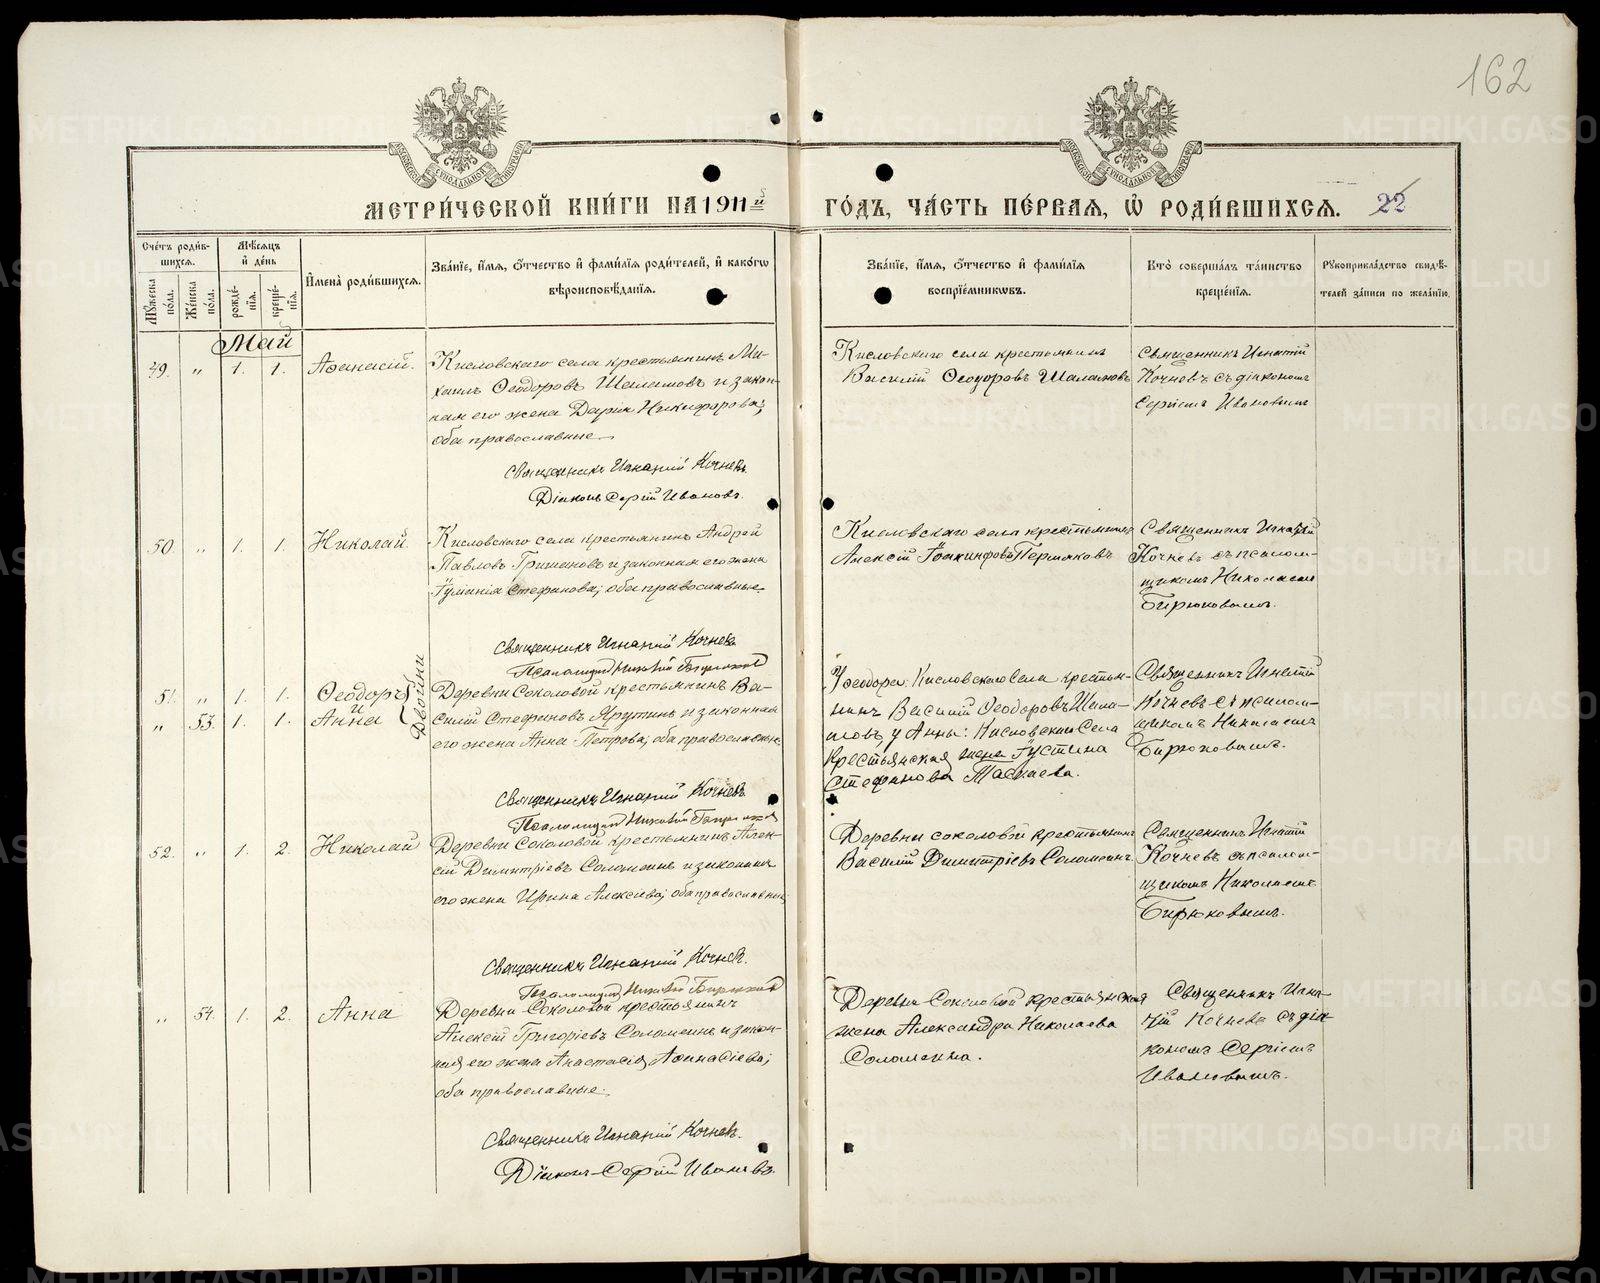 162
МЕТРИ́ЧЕСКОЙ КНИ́ГИ НА 1911 й
ГО́ДЪ, ЧА́СТЬ ПЕ́РВАЯ, Ѡ РОДИ́ВШИХСЯ. 22
Сче́тъ роди́в-
шихся.
Мѣ́сяцъ
и҆ де́нь
Му́жеска по́ла.
Же́нска по́ла.
рожде́-
нїя.
креще́-
нїя.
И҆мена̀ роди́вшихся.
Зва́нїе, и҆́мя, ѻ҆́тчество и҆ фами́лїя роди́телей, и҆ како́гѡ
вѣроисповѣ́данїя.
Зва́нїе, и҆́мя, ѻ҆́тчество и҆ фами́лїя
воспрїе́мниковъ.
Кто̀ соверша́лъ та́инство
креще́нїя.
Рꙋкоприкла́дство свидѣ́-
телей за́писи по жела́нїю.
Май
49. „ 1. 1. Аѳанасій.
Кисловскаго села крестьянинъ Ми-
хаилъ Ѳеодоровъ Шаламовъ и закон-
ная его жена Дарія Никифорова;
оба православные.
Священникъ Игнатій Кочневъ
Діаконъ Сергій Ивановъ.
Кисловскаго села крестьянинъ
Василій Ѳеодоровъ Шаламовъ
Священникъ Игнатій
Кочневъ съ діакономъ
Сергіемъ Ивановымъ
50. „ 1. 1. Николай.
Кисловскаго села крестьянинъ Андрей
Павловъ Гришановъ и законная его жена
Стефанова; оба православные.
Священникъ Игнатій Кочневъ
Псаломщикъ Николай Бирюковъ
Кисловскаго села крестьянинъ
Алексій Іоакинфовъ Пермяковъ
Священникъ Игнатій
Кочневъ съ псалом-
щикомъ Николаемъ
Бирюковымъ.
51. „ 1. 1. Ѳеодоръ
и
„ 53. 1. 1. Анна
Двойни
Деревни Соколовой крестьянинъ Ва-
силій Стефановъ и законная
его жена Анна Петрова; оба православные.
Священникъ Игнатій Кочневъ
Псаломщикъ Николай Бирюковъ
У Ѳеодора: Кисловскаго Села крестья-
нинъ Василій Ѳеодоровъ Шала-
мовъ, у Анны: Кисловскаго Села
Крестьянская Густина
Стефанова Таскаева.
Священникъ Игнатій
Кочневъ съ псалом-
щикомъ Николаемъ
Бирюковымъ.
52. „ 1. 2. Николай
Деревни Соколовой крестьянинъ Алек-
сій Димитріевъ Соломеинъ и законная
его жена Ирина Алексіева; оба православные
Священникъ Игнатій Кочневъ.
Псаломщикъ Николай Бирюковъ
Деревни Соколовой крестьянинъ
Василій Димитріевъ Соломеинъ
Священникъ Игнатій
Кочневъ съ псалом-
щикомъ Николаемъ
Бирюковымъ.
„ 54. 1. 2. Анна
Деревни Соколовой крестьянинъ
Алексій Григоріевъ Соломеинъ и закон-
ная его жена Анастасія Аѳанасіева;
оба православные.
Священникъ Игнатій Кочневъ.
Діаконъ Сергій Ивановъ.
Деревни Соколовой крестьянская
жена Александра Николаева
Соломеина.
Священникъ Игна-
тій Кочневъ съ діа-
кономъ Сергіемъ
Ивановымъ.
METRIKI.GASO-URAL.RU